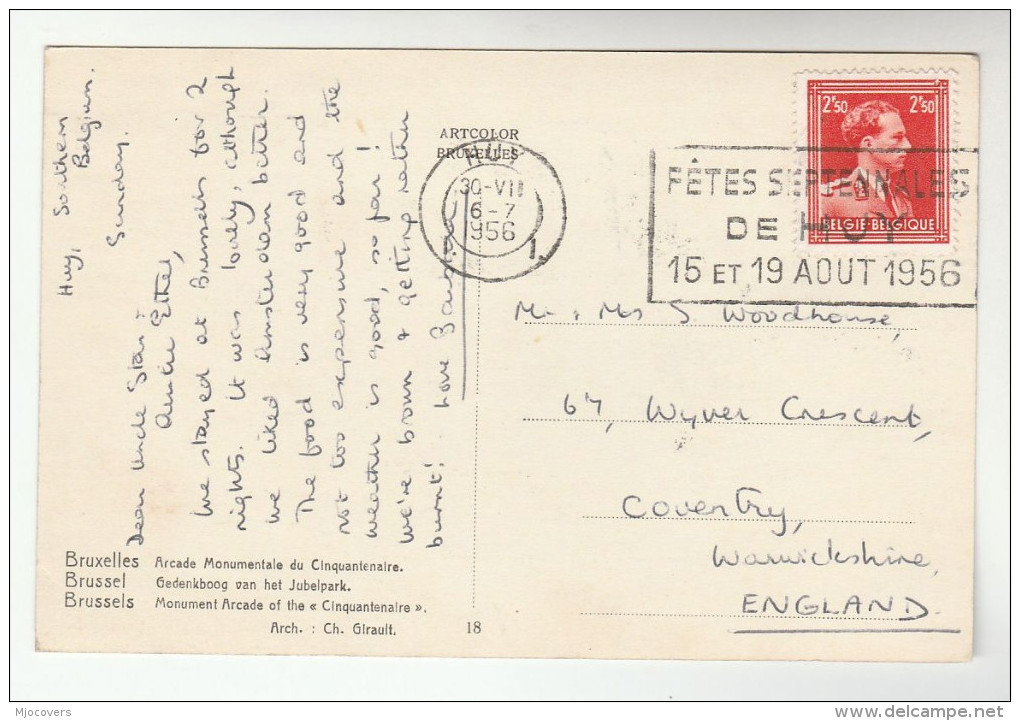 Huy, Southern
Belgium.
Sunday.
Dear Uncle Stan +
Auntie Ethel,
We stayed at Brussels for 2
nights. It was lovely, although
we liked Amsterdam better.
The food is very good and
not too expensive and the
weather is good, so far!
We're brown + getting rather
burnt! Love
ARTCOLOR
BRUXELLES
HUY
30-VII
6-7
1956
1
2F50 2F50
BELGIE-BELGIQUE
FÊTES SEPTENNALES
DE HUY
15 ET 19 AOUT 1956
Mr. & Mrs S. Woodhouse,
67, Wyver Crescent,
Coventry,
Warwickshire,
ENGLAND.
Bruxelles Arcade Monumentale du Cinquantenaire.
Brussel Gedenkboog van het Jubelpark.
Brussels Monument Arcade of the « Cinquantenaire ».
Arch. : Ch. Girault. 18
Mjocovers